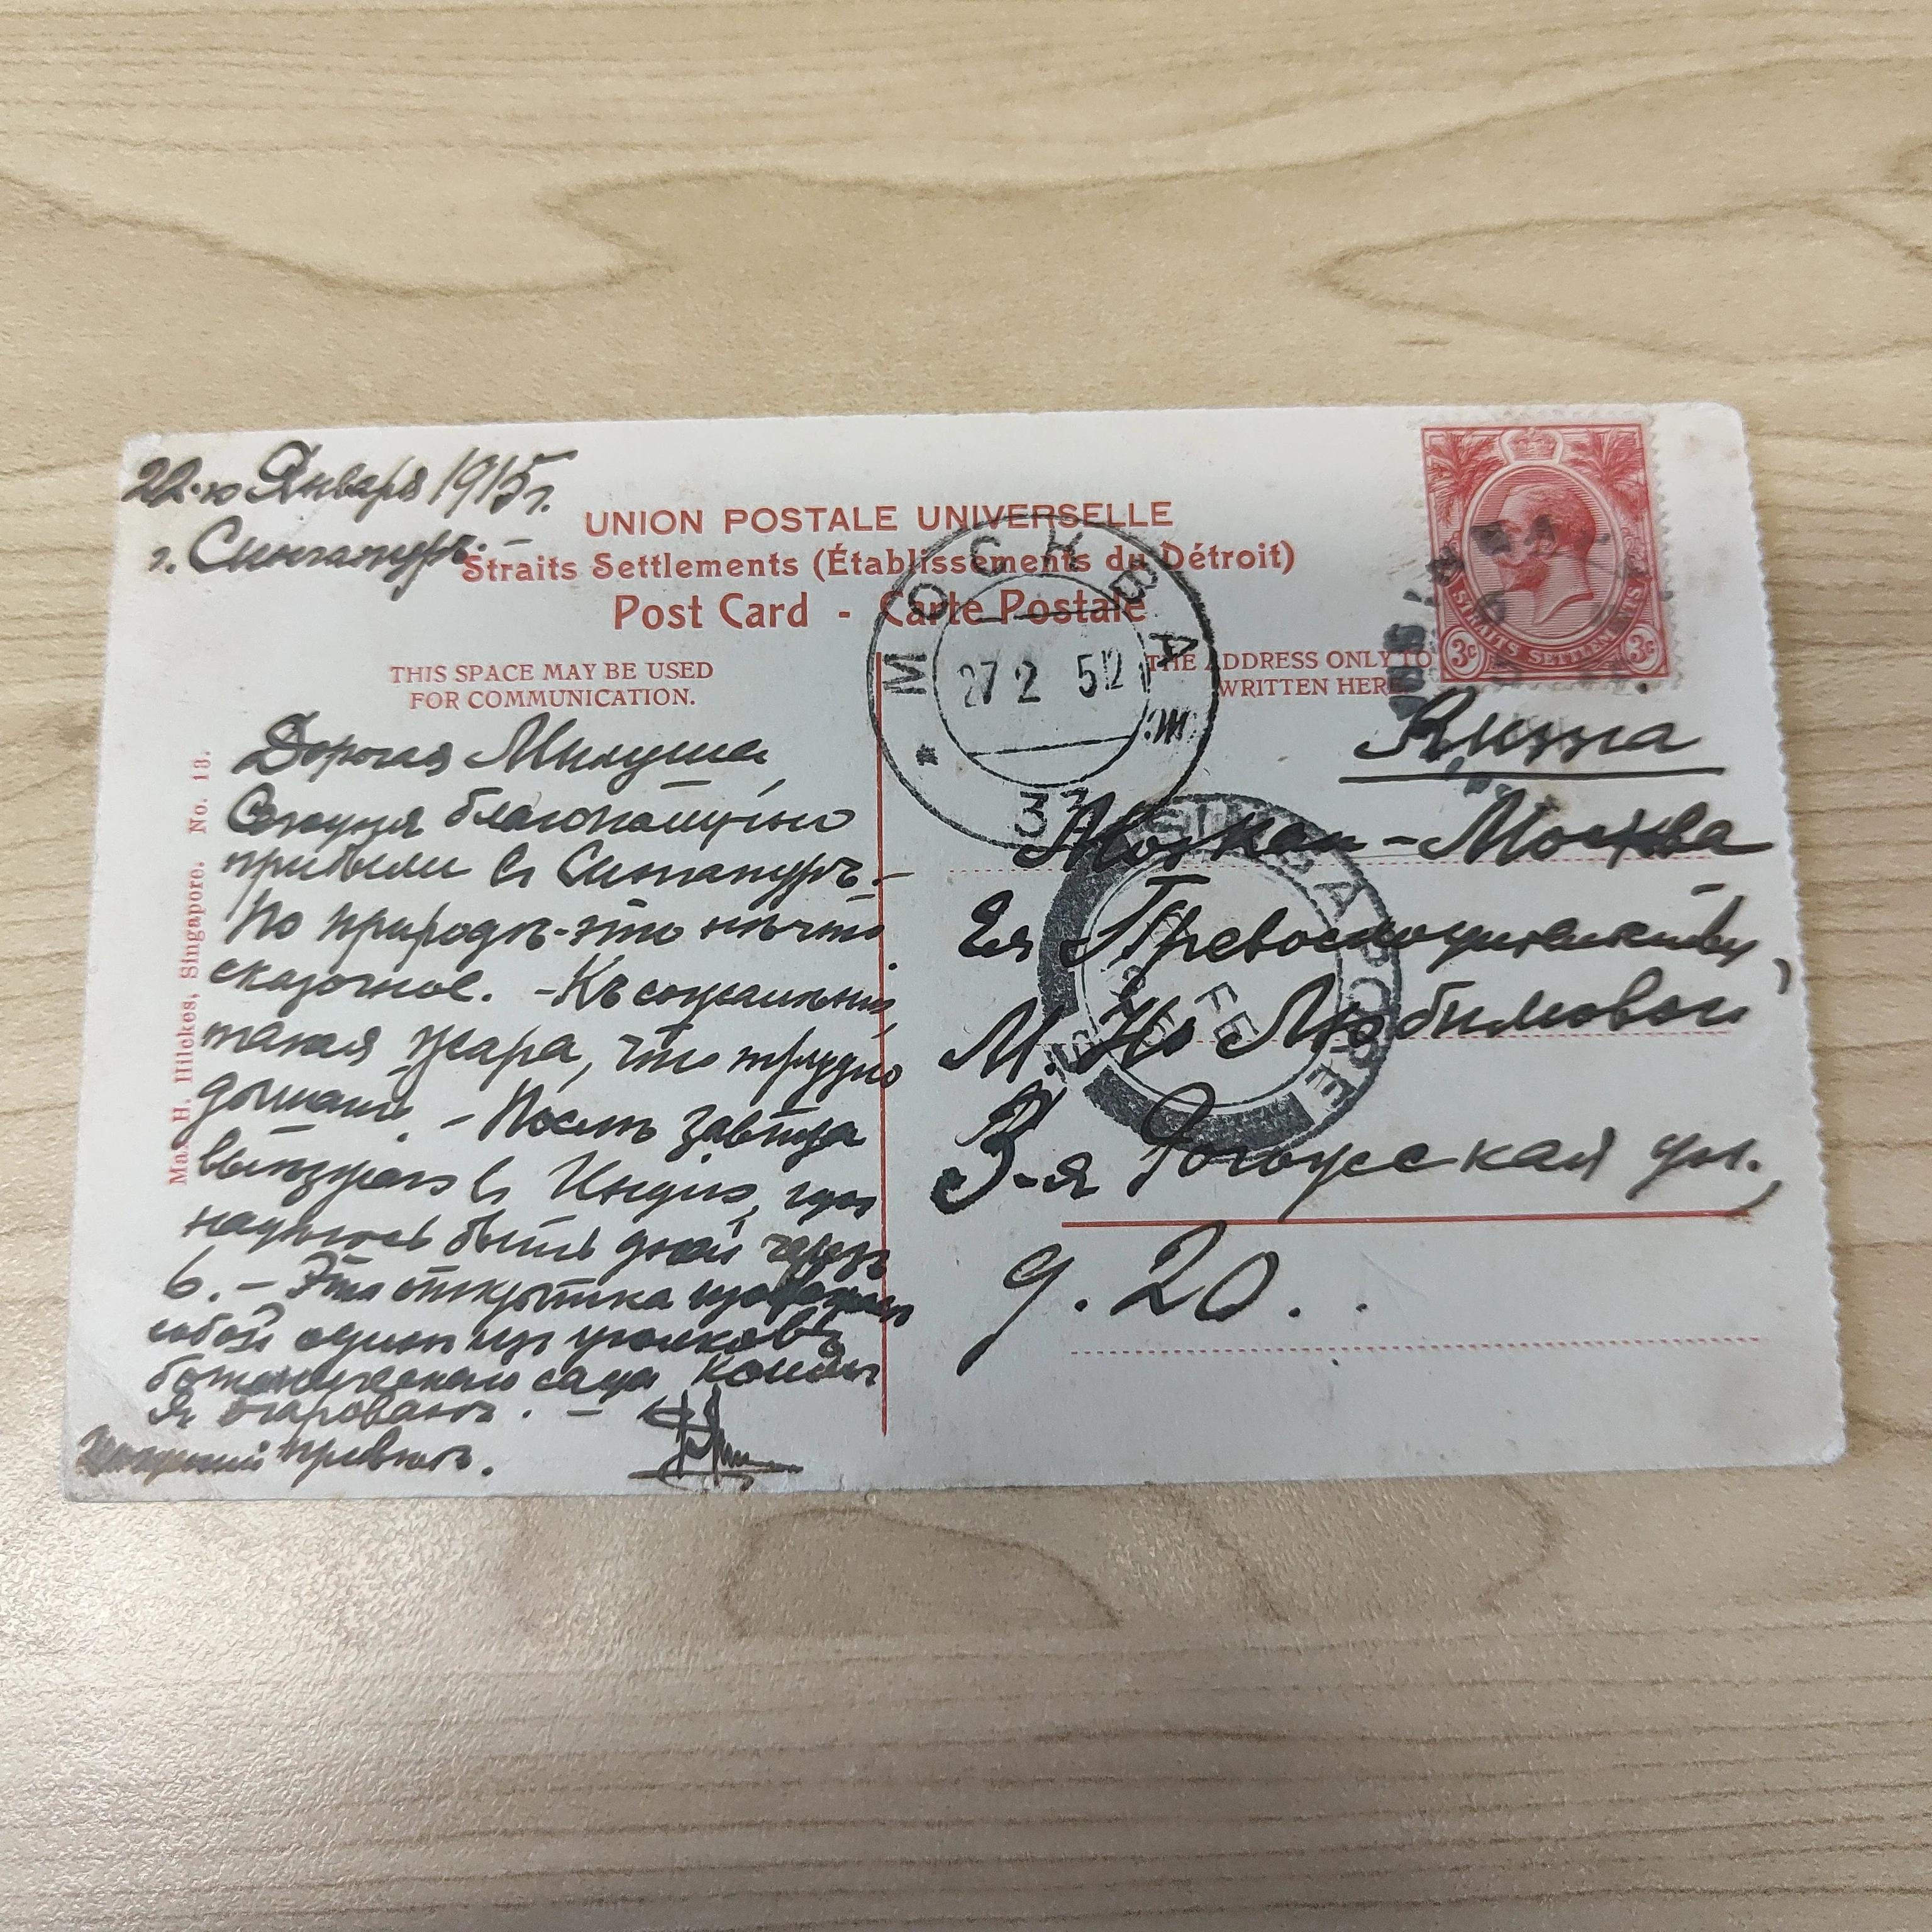 22-го Января 1915 г.
г. Сингапуръ. –
UNION POSTALE UNIVERSELLE
Straits Settlements (Établissements du Détroit)
Post Card - Carte Postale
THIS SPACE MAY BE USED
FOR COMMUNICATION.
Дорогая Милуша,
Сегодня благополучно
прибыли въ Сингапуръ. –
По природѣ - это нѣчто
сказочное. – Къ сожалѣнію,
такая жара, что трудно
дышать. – Послѣ завтра
выѣзжаю въ Индію, гдѣ
надѣюсь быть дней черезъ
6. – Эта открытка
собой одинъ изъ уголковъ
ботаническаго сада, коимъ
я очарованъ. –
привѣтъ.
Max H. Hilckes, Singapore. No. 13.
МОСКВА
27 2 5 12
33
THE ADDRESS ONLY TO
WRITTEN HERE
STRAITS SETTLEMENTS
3c 3c
Russia
Moskau - Москва
Ея Превосходительству,
М. Н. Любимовой
3-я Рогожская ул.,
д. 20.
SINGAPORE
FE